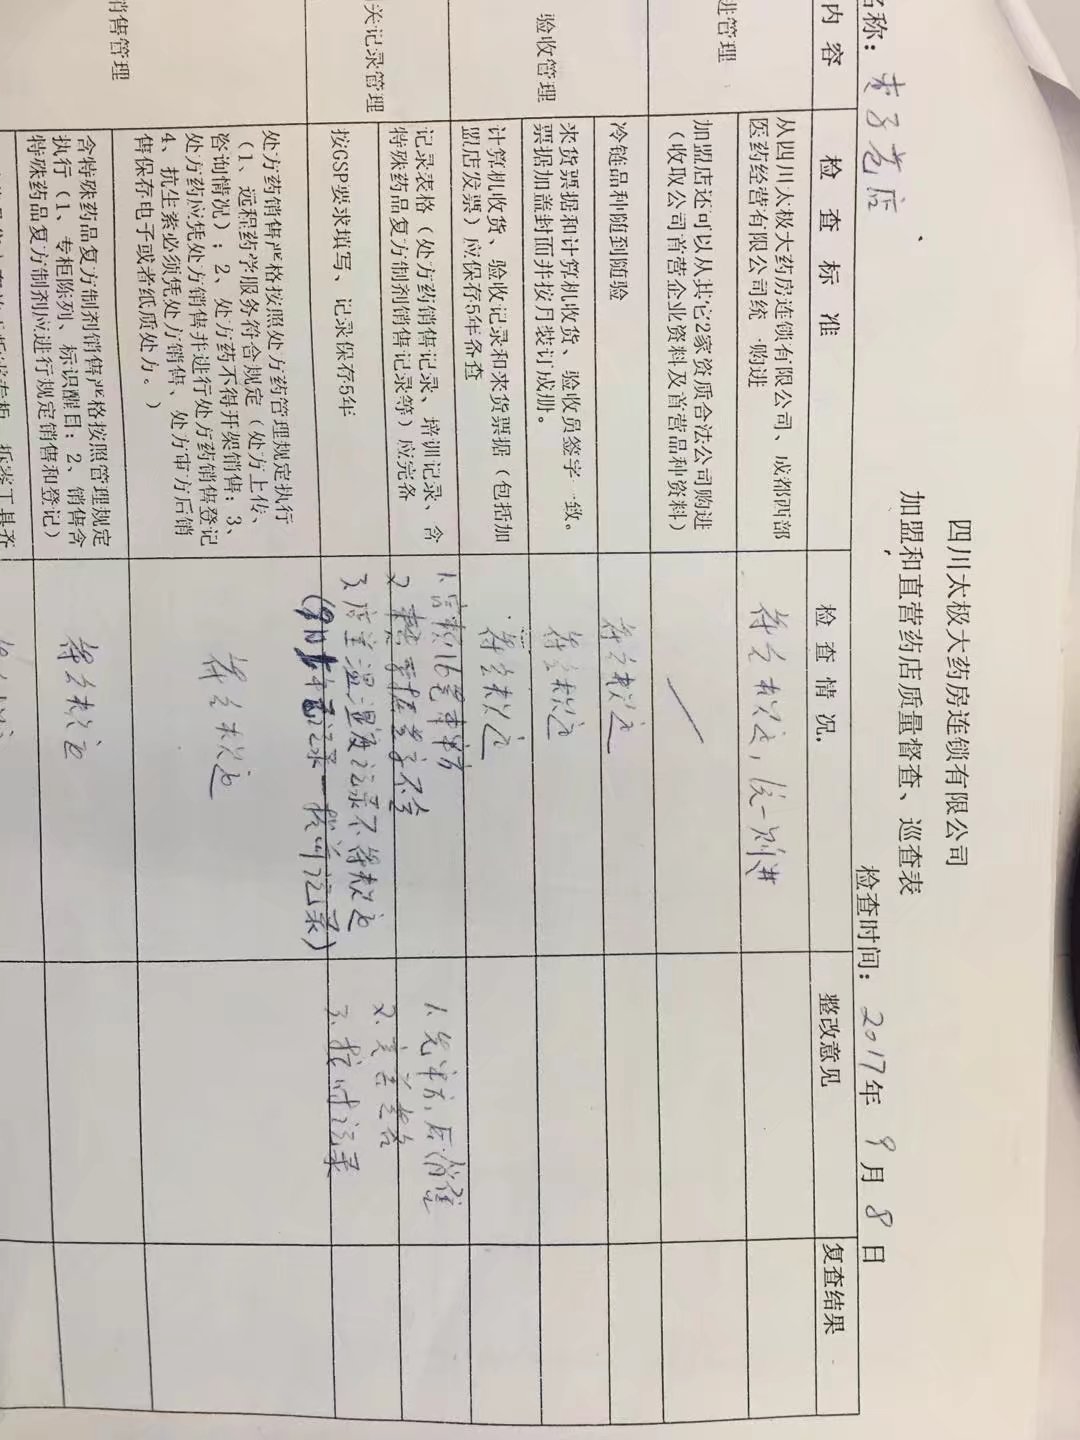 四川太极大药房连锁有限公司
加盟和直营药店质量督查、巡查表
名称：
检查时间：2017年9月8日
内容
检查标准
检查情况.
整改意见
复查结果
进管理
从四川太极大药房连锁有限公司、成都西部
医药经营有限公司统一购进
符合规定，统一购进
加盟店还可以从其它2家资质合法公司购进
（收取公司首营企业资料及首营品种资料）
验收管理
冷链品种随到随验
符合规定
来货票据和计算机收货、验收员签字一致。
票据加盖封面并按月装订成册。
符合规定
计算机收货、验收记录和来货票据（包括加
盟店发票）应保存5年备查
符合规定
关记录管理
记录表格（处方药销售记录、培训记录、含
特殊药品复方制剂销售记录等）应完备
按GSP要求填写、记录保存5年
签字不全
3.温湿度记录不符规定
1.先审方,后销售
2.
3.按时记录
销售管理
处方药销售严格按照处方药管理规定执行
（1、远程药学服务符合规定（处方上传、
咨询情况）；2、处方药不得开架销售；3、
处方药应凭处方销售并进行处方药销售登记
4、抗生素必须凭处方销售、处方审方后销
售保存电子或者纸质处方。）
符合规定
含特殊药品复方制剂销售严格按照管理规定
执行（1、专柜陈列、标识醒目；2、销售含
特殊药品复方制剂应进行规定销售和登记）
符合规定